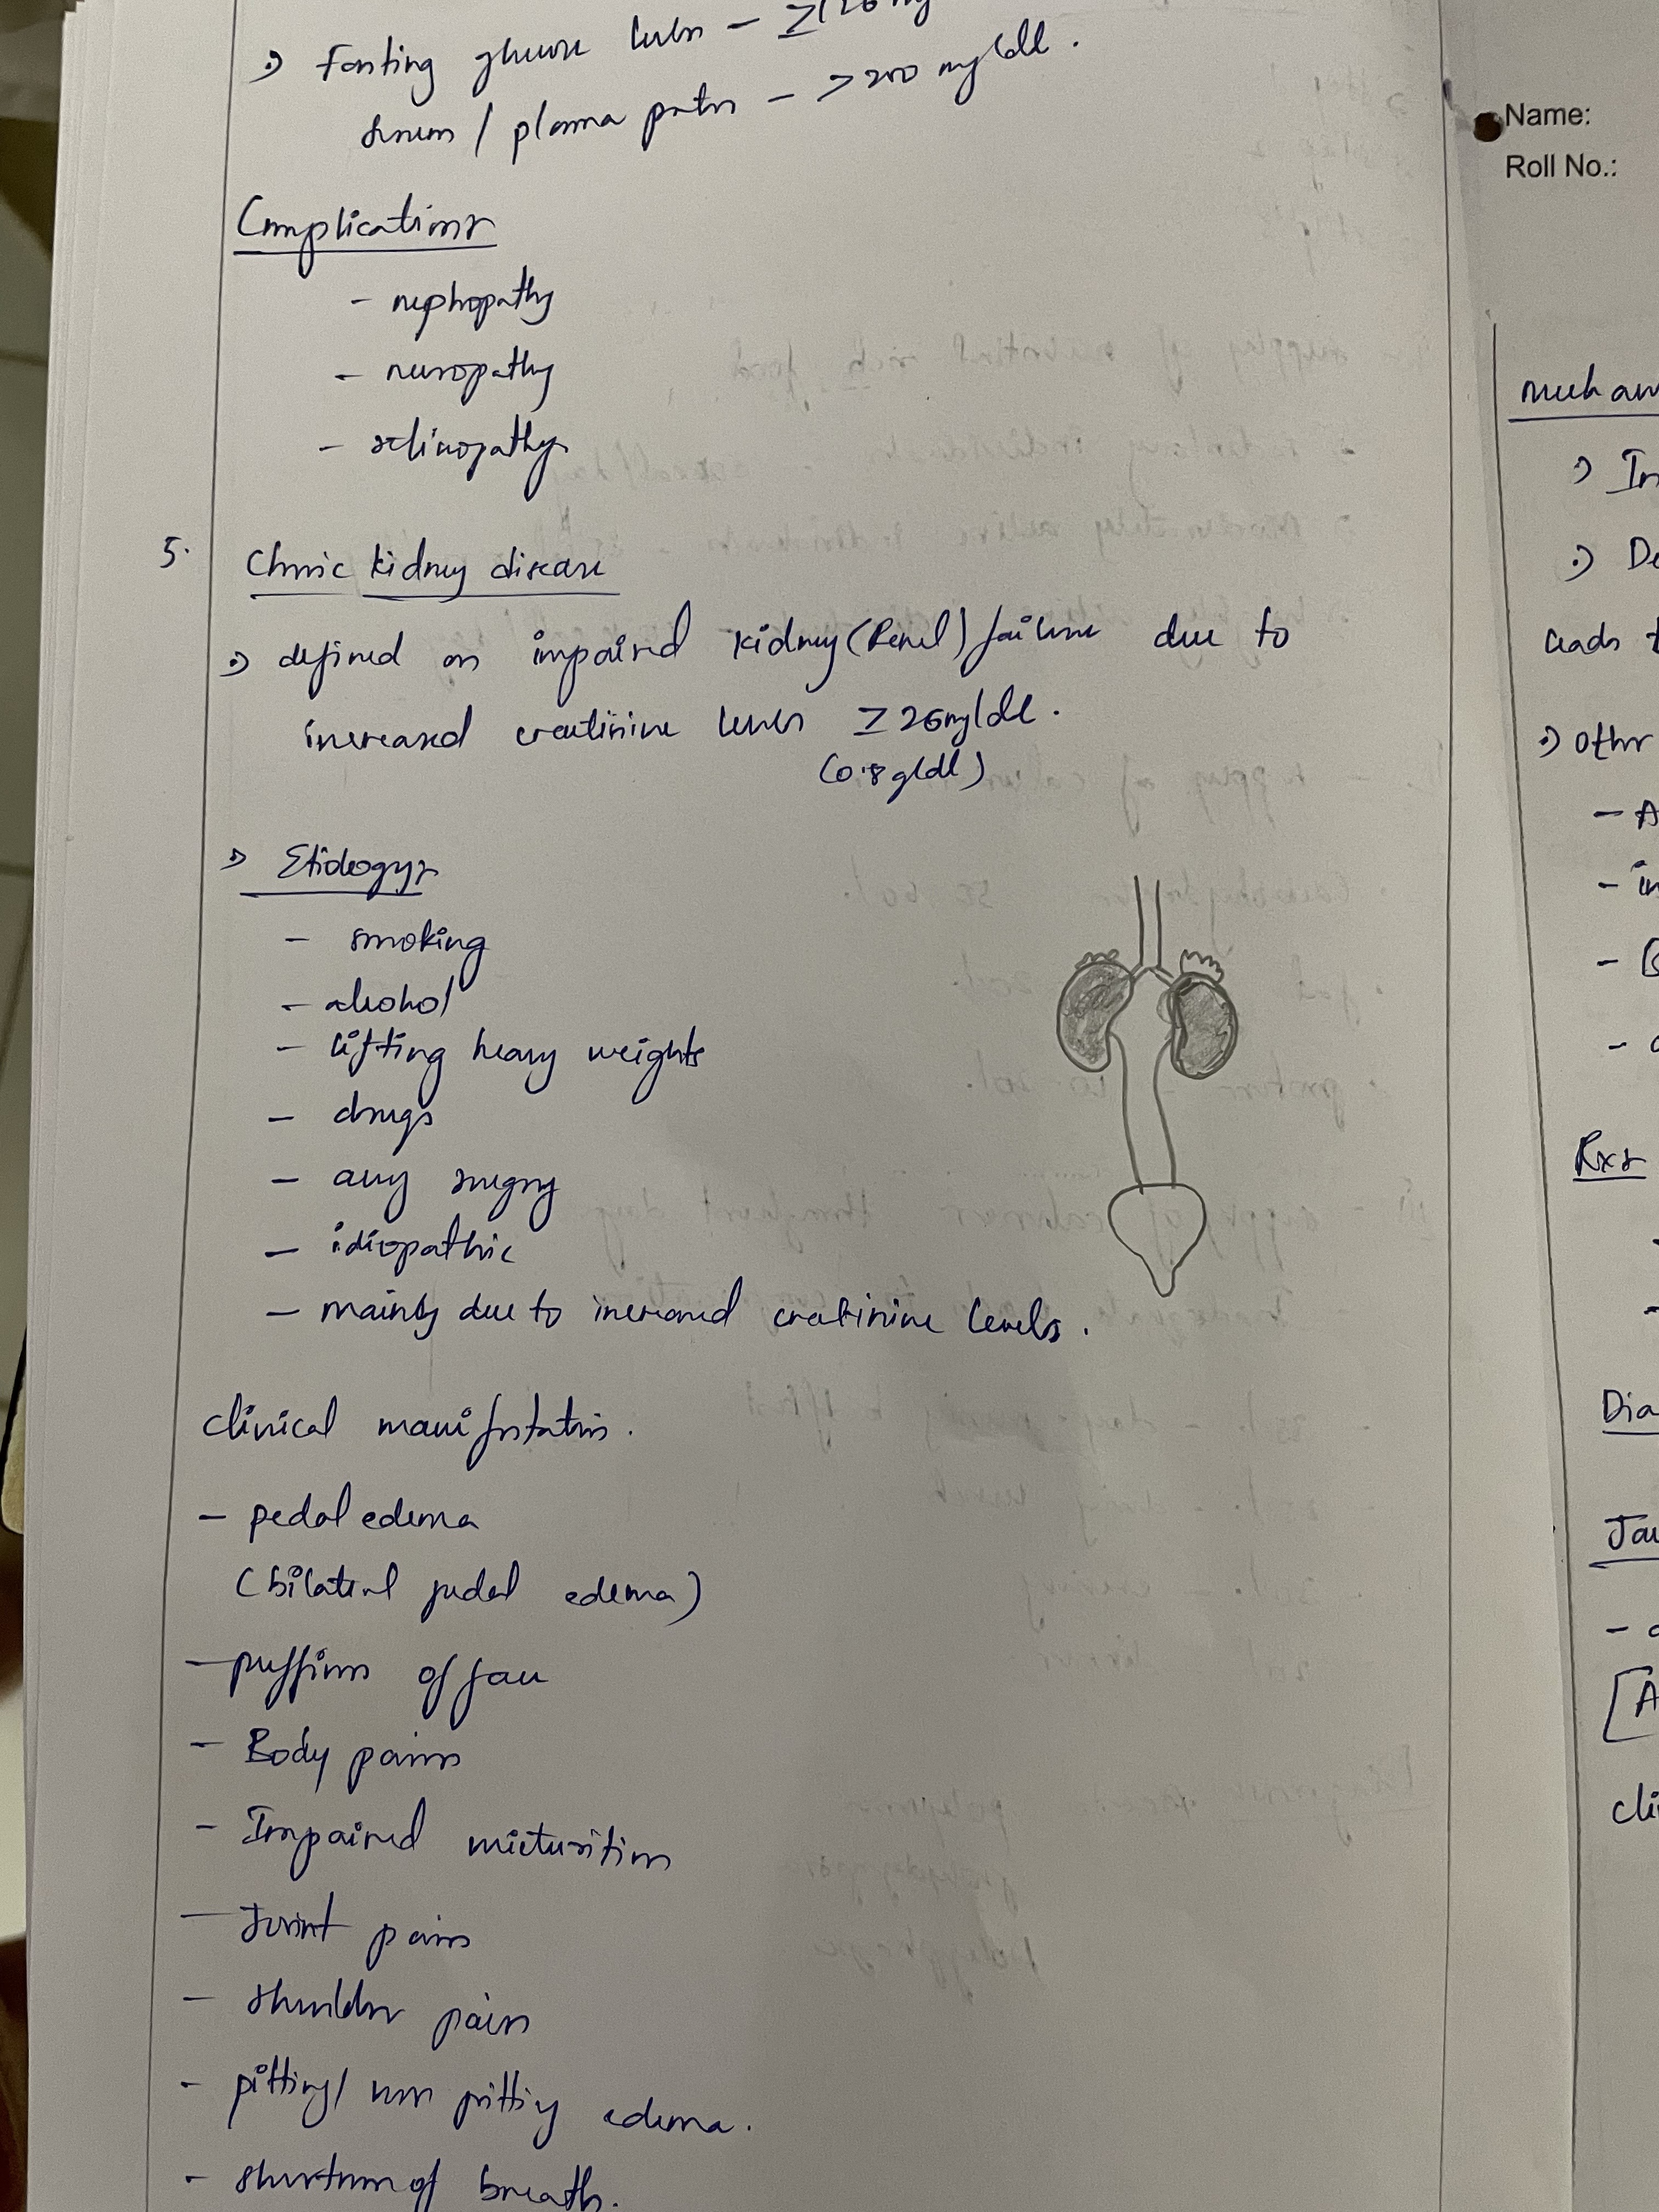 Fasting glucose levels - ≥126 mg
serum / plasma - >200 mg/dl.
Complications
- nephopathy
- neuropathy
- retinopathy
5. Chronic kidney disease
defined as impaired kidney (Renal) failure due to
increased creatinine levels ≥ 26mg/dl.
(0.8 g/dl)
Etiology:
- smoking
- alcohol
- lifting heavy weights
- drugs
- any surgery
- idiopathic
- mainly due to increased creatinine levels.
clinical manifestations.
- pedal edema
(bilateral pedal edema)
- puffiness of face
- Body pains
- Impaired micturition
- Joint pains
- shoulder pain
- pitting/ non pitting edema.
- shortness of breath.
Name:
Roll No.:
In
De
leads t
Other
- A
- in
Rx:
Dia
[A
cli